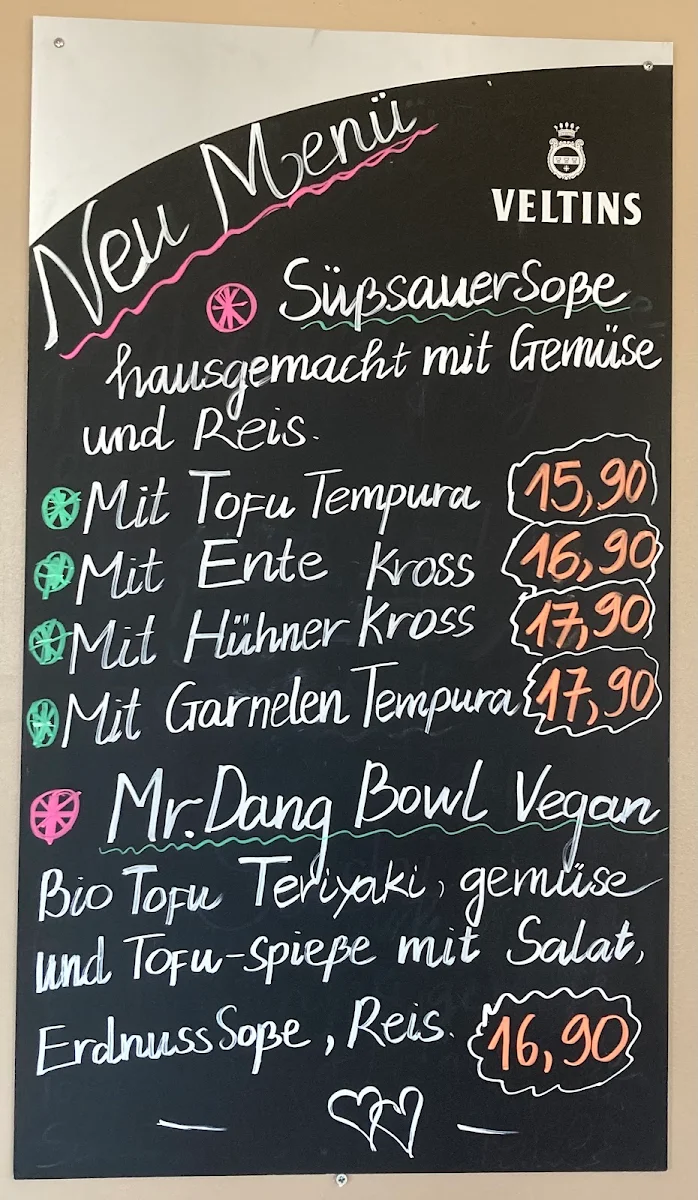 Neu Menü
VELTINS
Süßsauer Soße
hausgemacht mit Gemüse
und Reis.
Mit Tofu Tempura 15,90
Mit Ente Kross 16,90
Mit Hühner Kross 17,90
Mit Garnelen Tempura 17,90
Mr. Dang Bowl Vegan
Bio Tofu Teriyaki, gemüse
und Tofu-spieße mit Salat,
Erdnuss Soße, Reis. 16,90